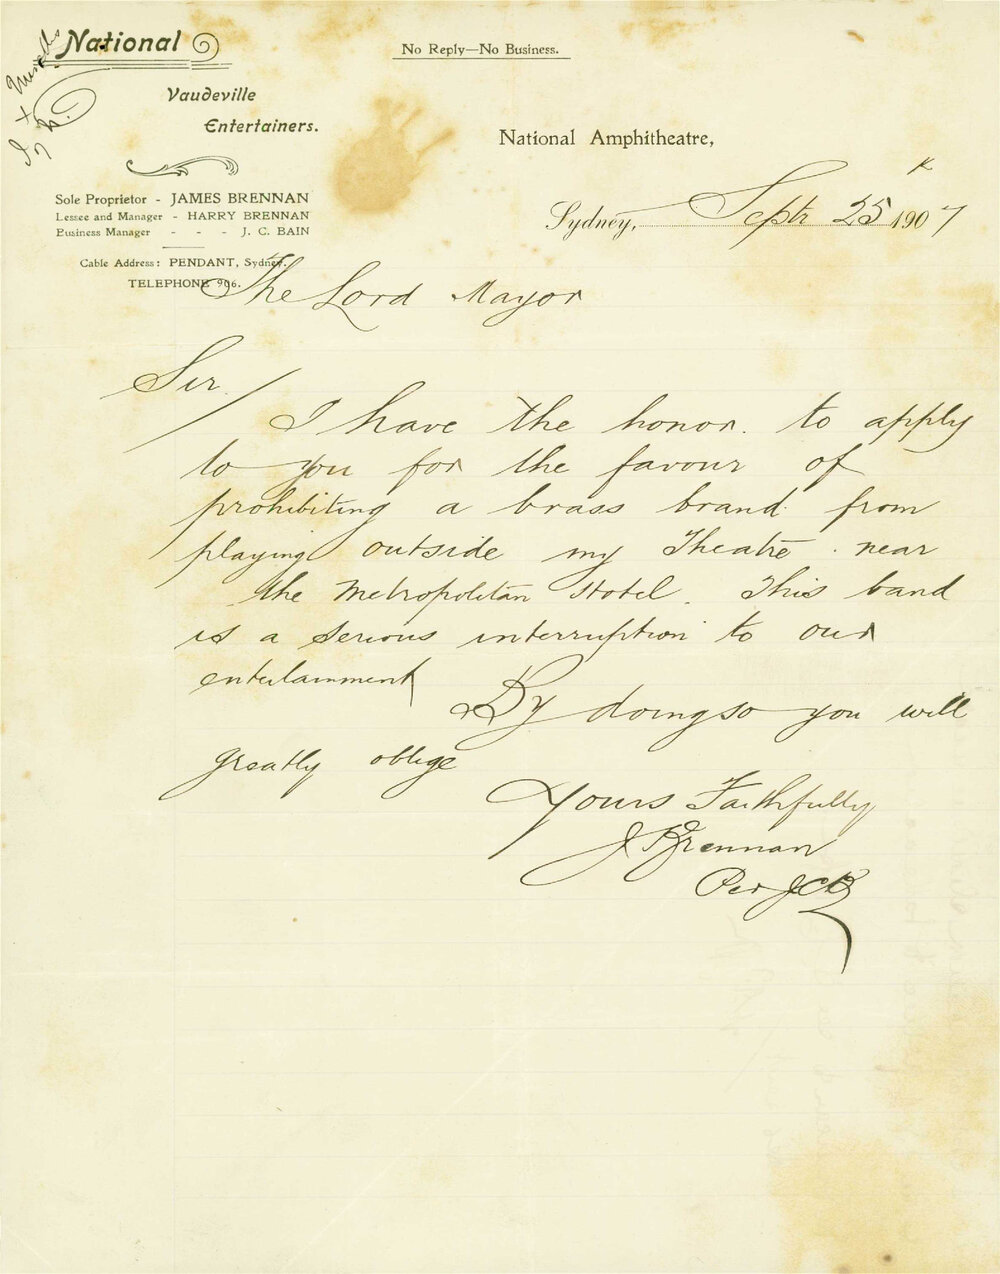 National
Vaudeville
Entertainers.
No Reply—No Business.
National Amphitheatre,
Sole Proprietor - JAMES BRENNAN
Lessee and Manager - HARRY BRENNAN
Business Manager - - - J. C. BAIN
Cable Address: PENDANT, Sydney.
TELEPHONE 906.
Sydney, Septr 25th 1907
The Lord Mayor
Sir /
I have the honor. to apply
to you for the favour of
prohibiting a brass brand from
playing outside my Theatre . near
the Metropolitan Hotel. This band
is a serious interruption to our
entertainment
By doing so you will
greatly oblige
Yours Faithfully
J Brennan
Per JCB